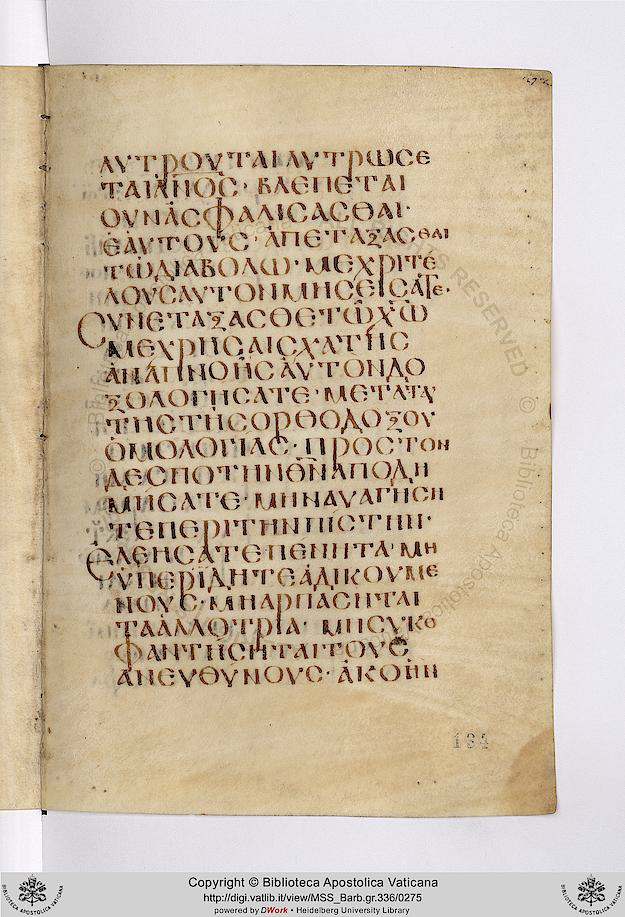 ΛΥΤΡΟΥΤΑΙ ΛΥΤΡΩΣΕ
ΤΑΙ ΑΝΟΣ· ΒΛΕΠΕΤΑΙ
ΟΥΝ ΑΣΦΑΛΙΣΑΣΘΑΙ·
ΕΑΥΤΟΥΣ· ΑΠΕΤΑΞΑΣΘΑΙ
ΤΩ ΔΙΑΒΟΛΩ· ΜΕΧΡΙ ΤΕ
ΛΟΥΣ ΑΥΤΟΝ ΜΗΣΕΙΣΑΤΕ·
ΣΥΝΕΤΑΞΑΣΘΕ ΤΩ ΧΩ
ΜΕΧΡΗΣ ΑΙΣΧΑΤΗΣ
ΑΝΑΠΝΟΗΣ ΑΥΤΟΝ ΔΟ
ΞΟΛΟΓΗΣΑΤΕ· ΜΕΤΑ
ΤΗΣ ΤΗΣ ΟΡΘΟΔΟΞΟΥ
ΟΜΟΛΟΓΙΑΣ· ΠΡΟΣ ΤΟΝ
ΔΕΣΠΟΤΗΝ ΘΝ ΑΠΟΔΗ
ΜΗΣΑΤΕ· ΜΗ ΝΑΥΑΓΗΣΗ
ΤΕ ΠΕΡΙ ΤΗΝ ΠΙΣΤΗΝ·
ΕΛΕΗΣΑΤΕ ΠΕΝΗΤΑ· ΜΗ
ΥΠΕΡΙΔΗΤΕ ΑΔΙΚΟΥΜΕ
ΝΟΥΣ· ΜΗ ΑΡΠΑΣΗΤΑΙ
ΤΑ ΑΛΛΟΤΡΙΑ· ΜΗ ΣΥΚΟ
ΦΑΝΤΗΣΗΤΑΙ ΤΟΥΣ
ΑΝΕΥΘΥΝΟΥΣ· ΑΚΟΗΝ
134
RIGHTS RESERVED
© Biblioteca Apostolica
Copyright © Biblioteca Apostolica Vaticana
http://digi.vatlib.it/view/MSS_Barb.gr.336/0275
powered by DWork • Heidelberg University Library
BIBLIOTECA APOSTOLICA VATICANA
BIBLIOTECA APOSTOLICA VATICANA